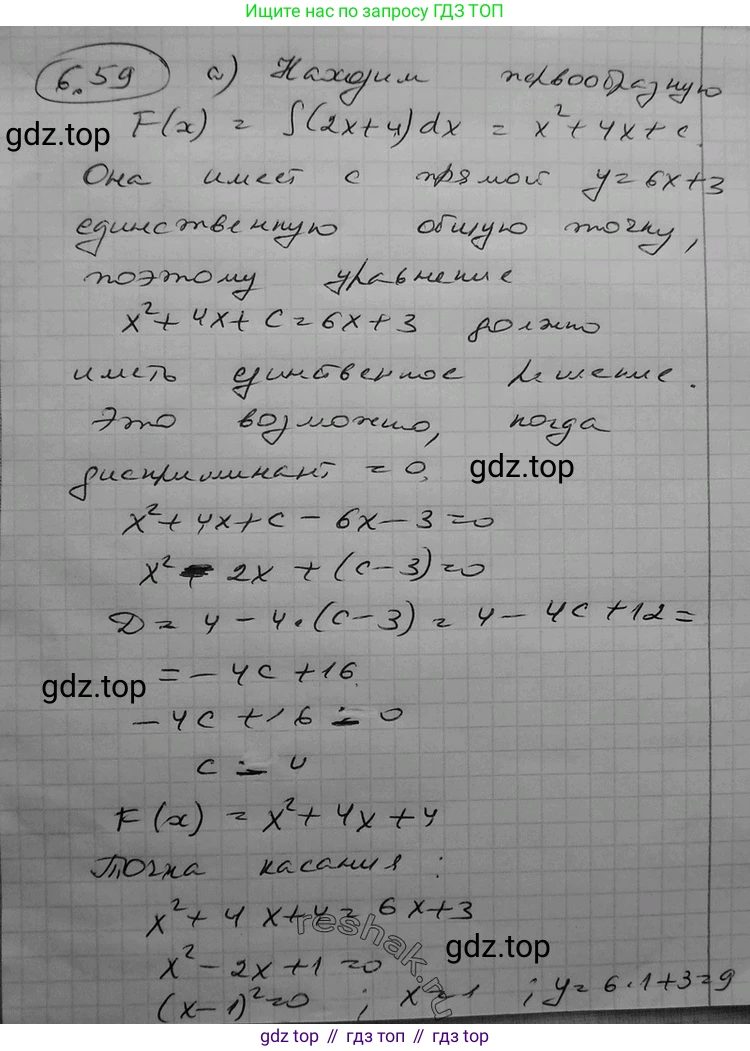 Ищите нас по запросу ГДЗ ТОП
6.59 а) Находим первообразную
F(x) = ∫(2x+4)dx = x²+4x+c.
gdz.top
Она имеет с прямой y=6x+3
единственную общую точку,
поэтому уравнение
x²+4x+c=6x+3 должно
иметь единственное решение.
Это возможно, когда
дискриминант =0.
gdz.top
x²+4x+c-6x-3=0
x²-2x+(c-3)=0
D=4-4·(c-3)=4-4c+12=
=-4c+16.
gdz.top
-4c+16=0
c=4
F(x)=x²+4x+4
Точка касания:
x²+4x+4=6x+3
reshak.ru
gdz.top
x²-2x+1=0
(x-1)²=0 ; x=1 ; y=6·1+3=9
gdz top // гдз топ // gdz.top